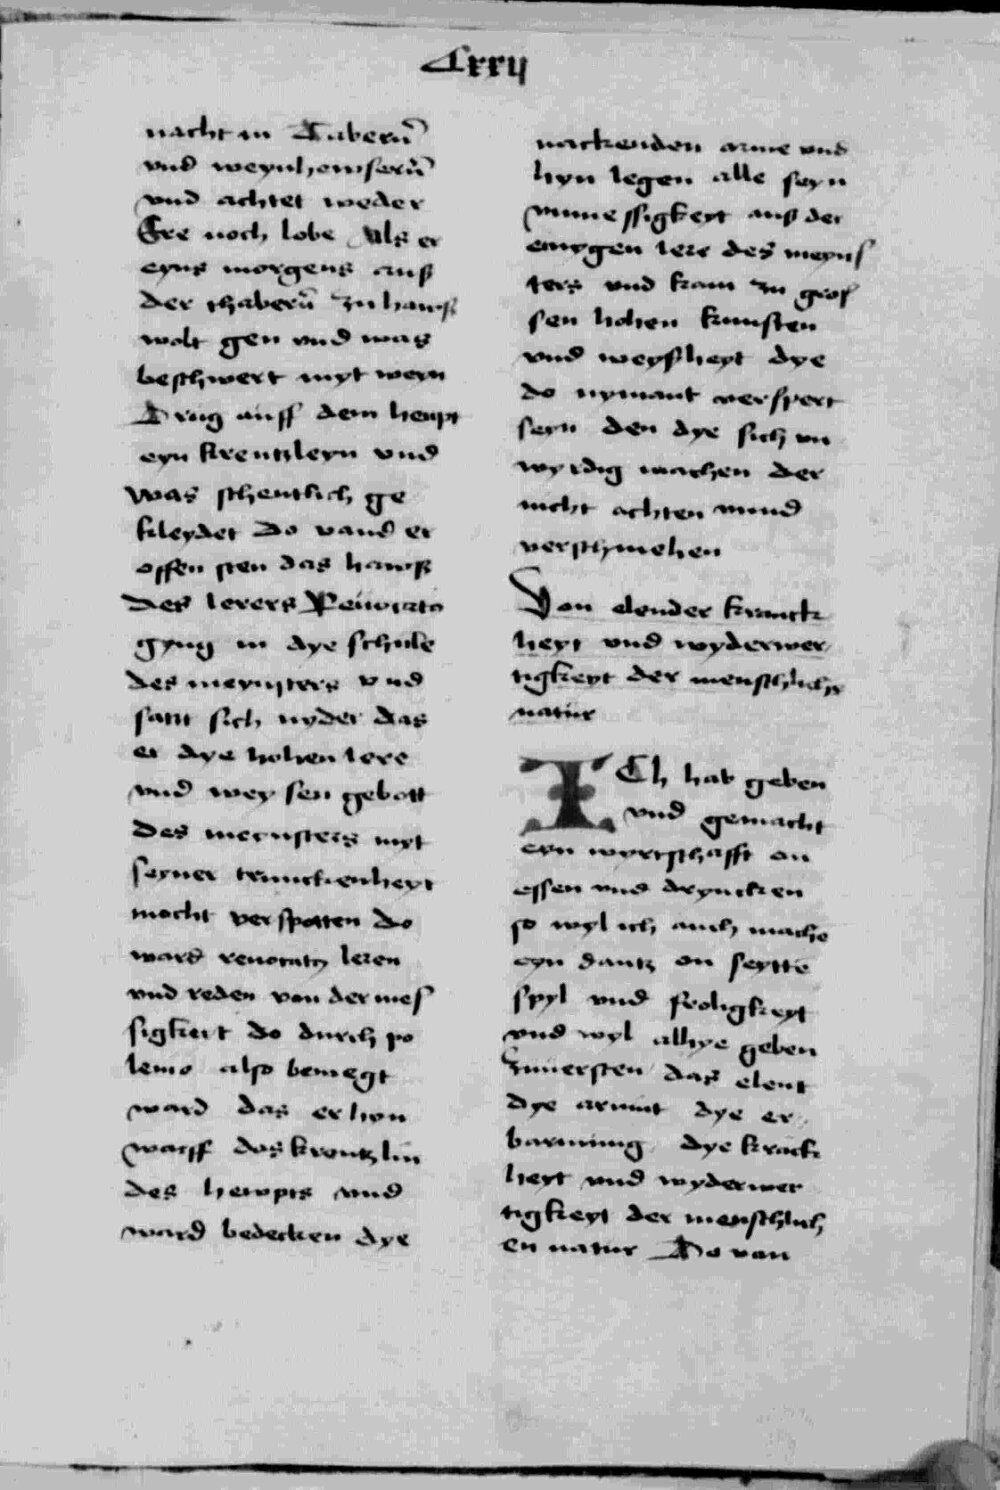 Cxxij
nacht in Tabern̄
vnd weynhewsern̄
vnd achtet weder
Ere noch lobe Als er
eyns morgens auß
der thabern̄ zu hawß
wolt gen vnd was
beschwert myt weyn
Trug auff dem heupt
eyn krentzleyn vnd
was schentlich ge
kleydet Do vand er
offen sten das hawß
des lerers
gyng in dye schule
des meynsters vnd
satzt sich nyder das
er dye hohen lere
vnd weysen gebott
des meynsters myt
seyner trunckenheyt
mocht verspotten do
ward renocratz leren
vnd reden von der mes
sigkeit do durch po
lemo also bewegt
ward das er hyn
warff das krentzlin
des hewpts vnd
ward bedecken dye
nackenden arme vnd
hyn legen alle seyn
vnmessigkeyt auß der
eynygen lere des meyns
ters vnd kam zu gros
sen hohen kunsten
vnd weyßheyt dye
do nymant verspert
seyn den dye sich vn
wyrdig machen der
nicht achten vnnd
verschmehen
Von elender kranck
heyt vnd wyderwer
tigkeyt der menschlichē
natur
ICh hab geben
vnd gemacht
eyn wyrtschafft on
essen vnd dryncken
so wyl ich auch mache
eyn dantz on seyttē
spyl vnd froligkeyt
vnd wyl alhye geben
zuuersten das elent
dye armut dye er
barmung dye krāck
heyt vnd wyderwer
tigkeyt der menschlich
en natur Do von